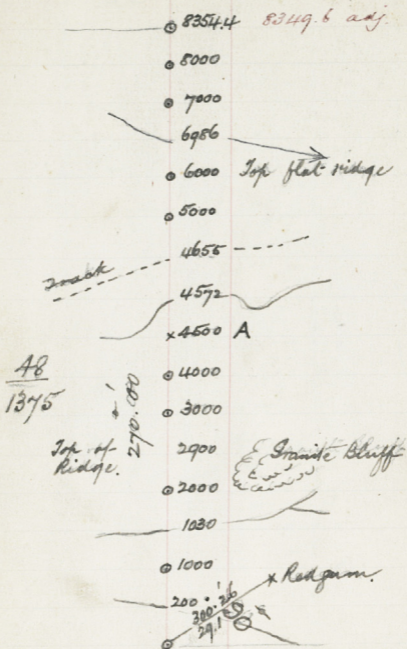 8354.4 8349.6 adj.
8000
7000
6986
6000 Top flat ridge
5000
4655
Track
4572
4500 A
48
1375
4000
270.00'
3000
Top of
Ridge.
2900 Granite Bluff
2000
1030
1000
Redgum.
200
300.26'
29.1